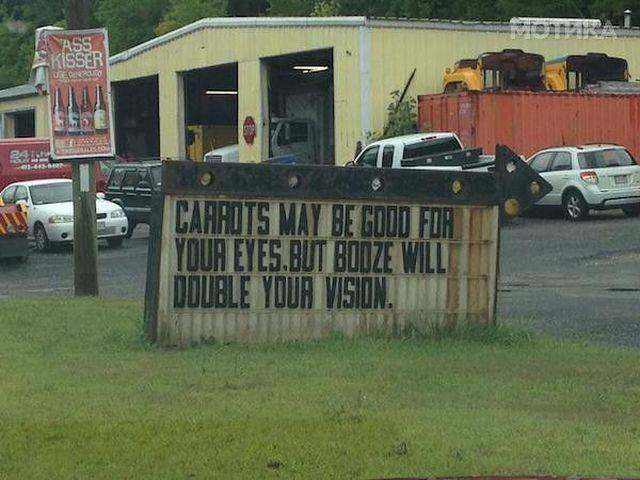 МОТИКА
ASS
KISSER
STOP
CARROTS MAY BE GOOD FOR
YOUR EYES.BUT BOOZE WILL
DOUBLE YOUR VISION.